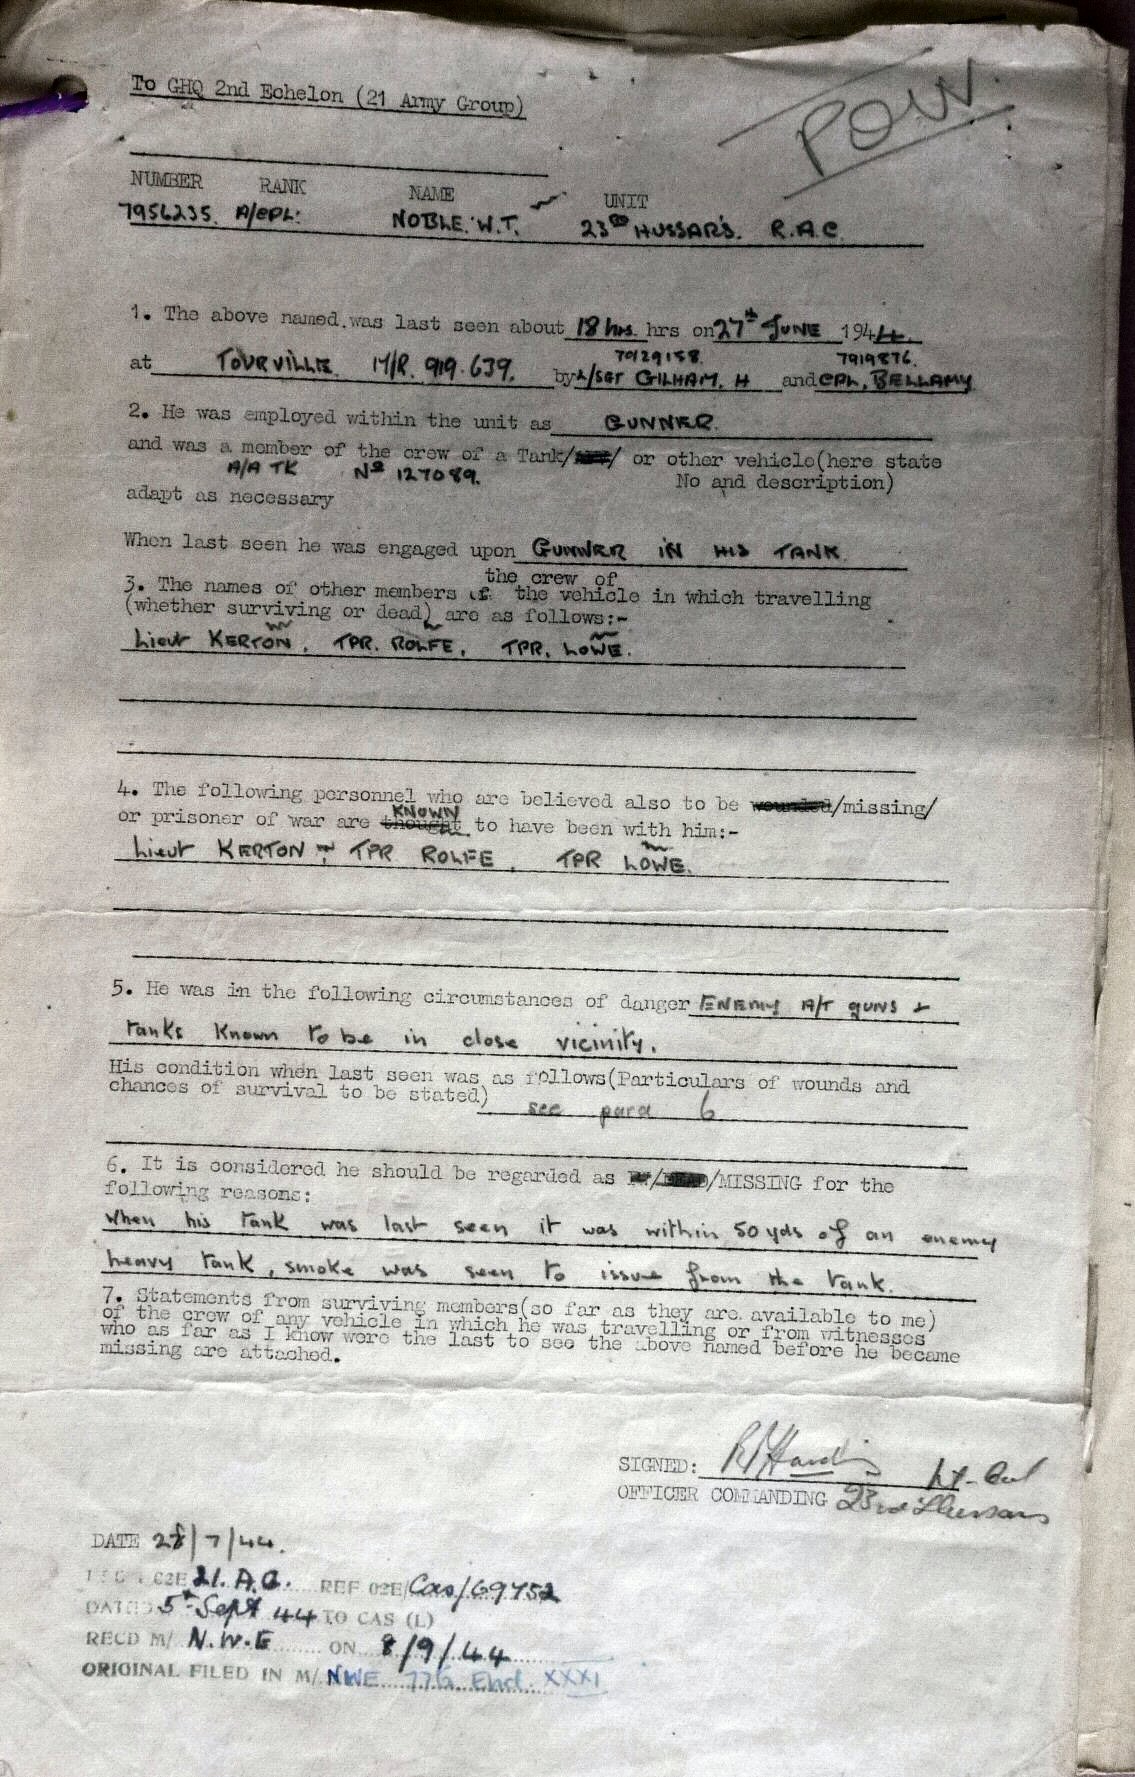 To GHQ 2nd Echelon (21 Army Group)
POW.
NUMBER RANK NAME UNIT
7956235. A/CPL: NOBLE. W.T. 23RD HUSSAR'S. R.A.C.
1. The above named.was last seen about 18 hrs. hrs on 27th JUNE 1944.
7929158. 7919876.
at TOURVILLE M/R. 919.639. by L/SGT GILHAM. H and CPL, BELLAMY
2. He was employed within the unit as GUNNER.
and was a member of the crew of a Tank/ / or other vehicle(here state
A/A TK No 127089. No and description)
adapt as necessary
When last seen he was engaged upon GUNNER IN HIS TANK.
the crew of
3. The names of other members of the vehicle in which travelling
(whether surviving or dead) are as follows:-
Lieut KERTON, TPR. ROLFE, TPR. LOWE.
4. The following personnel who are believed also to be wounded/missing/
KNOWN
or prisoner of war are thought to have been with him:-
Lieut KERTON, TPR ROLFE, TPR LOWE.
5. He was in the following circumstances of danger ENEMY A/T guns &
tanks known to be in close vicinity.
His condition when last seen was as follows(Particulars of wounds and
chances of survival to be stated) see para 6
6. It is considered he should be regarded as /DEAD/MISSING for the
following reasons:
When his tank was last seen it was within 50 yds of an enemy
heavy tank, smoke was seen to issue from the tank.
7. Statements from surviving members(so far as they are available to me)
of the crew of any vehicle in which he was travelling or from witnesses
who as far as I know were the last to see the above named before he became
missing are attached.
SIGNED: Harding Lt-Col
OFFICER COMMANDING 23rd Hussars
DATE 28/7/44.
02E 21. A.G. REF 02E/Cas/69752
DATED 5th Sept 44 TO CAS (L)
RECD M/ N.W.E ON 8/9/44
ORIGINAL FILED IN M/ NWE 776 Encl. XXXI